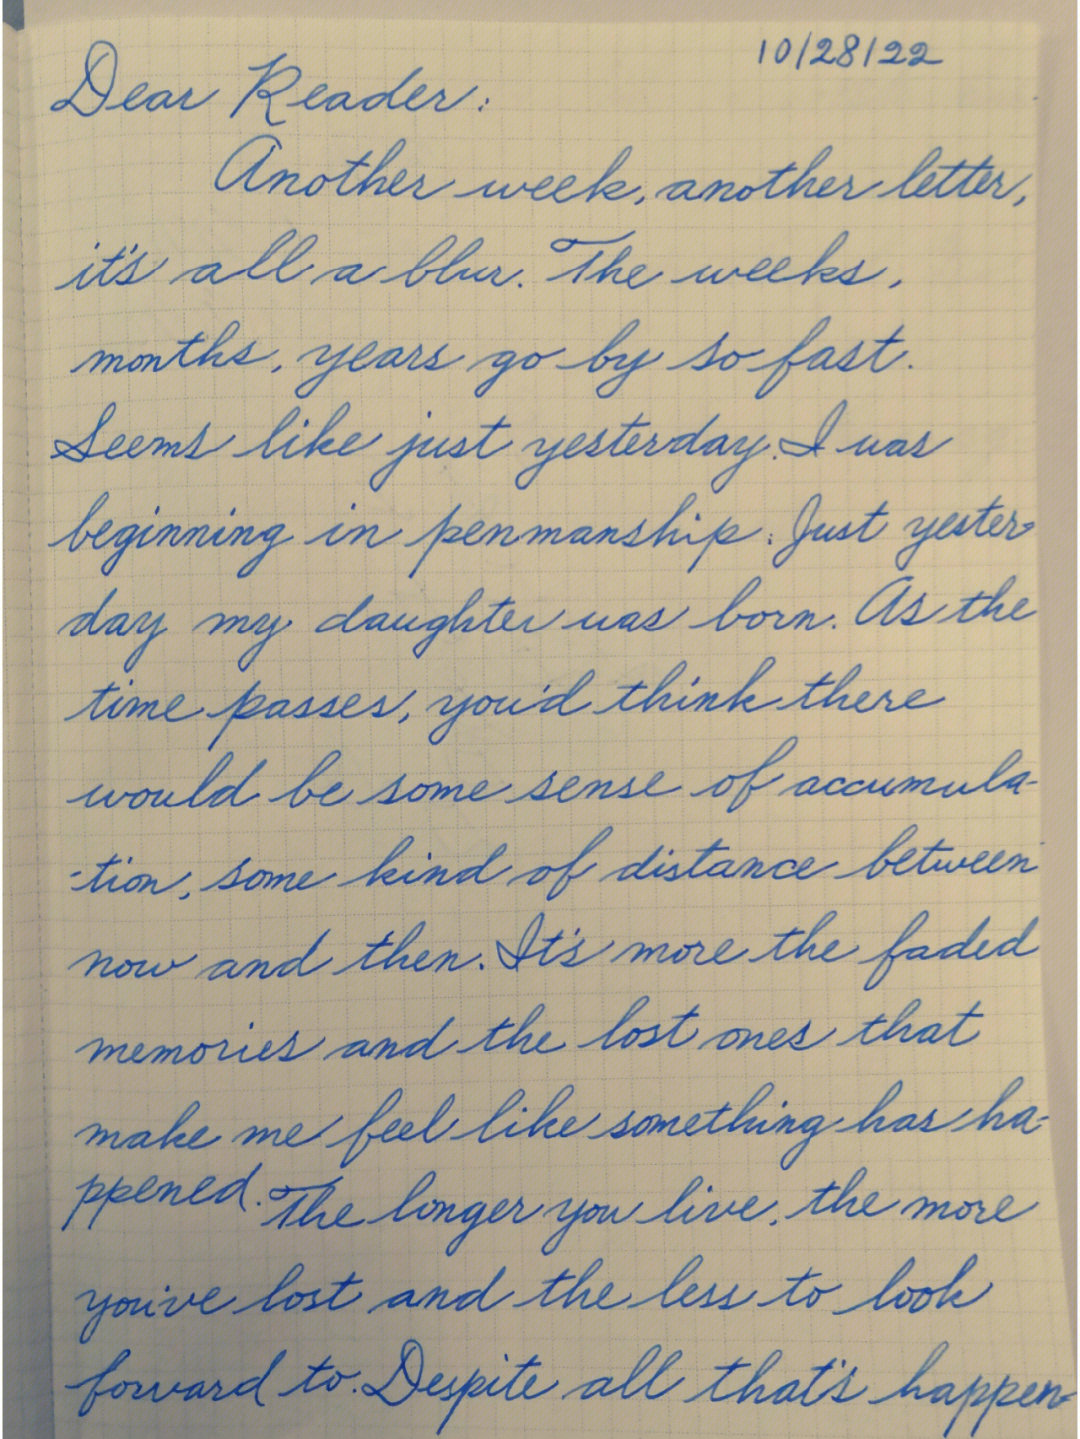 10/28/22
Dear Reader:
Another week, another letter,
it's all a blur. The weeks,
months, years go by so fast.
Seems like just yesterday I was
beginning in penmanship. Just yester-
day my daughter was born. As the
time passes, you'd think there
would be some sense of accumula-
-tion, some kind of distance between
now and then. It's more the faded
memories and the lost ones that
make me feel like something has ha-
ppened. The longer you live, the more
you've lost and the less to look
forward to. Despite all that's happen-